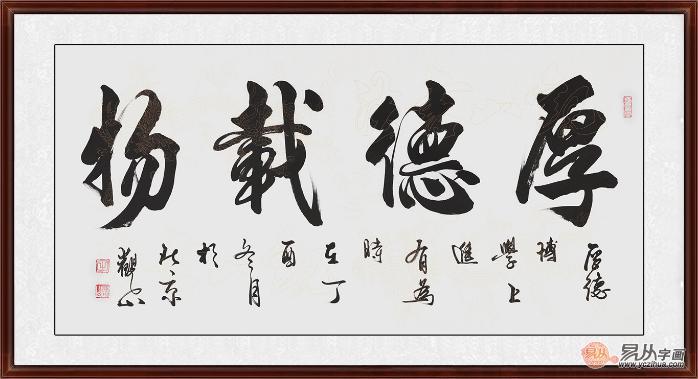 厚德載物
厚德博學上進有為時在丁酉冬月於北京觀山
易从
易从字画
www.yczihua.com